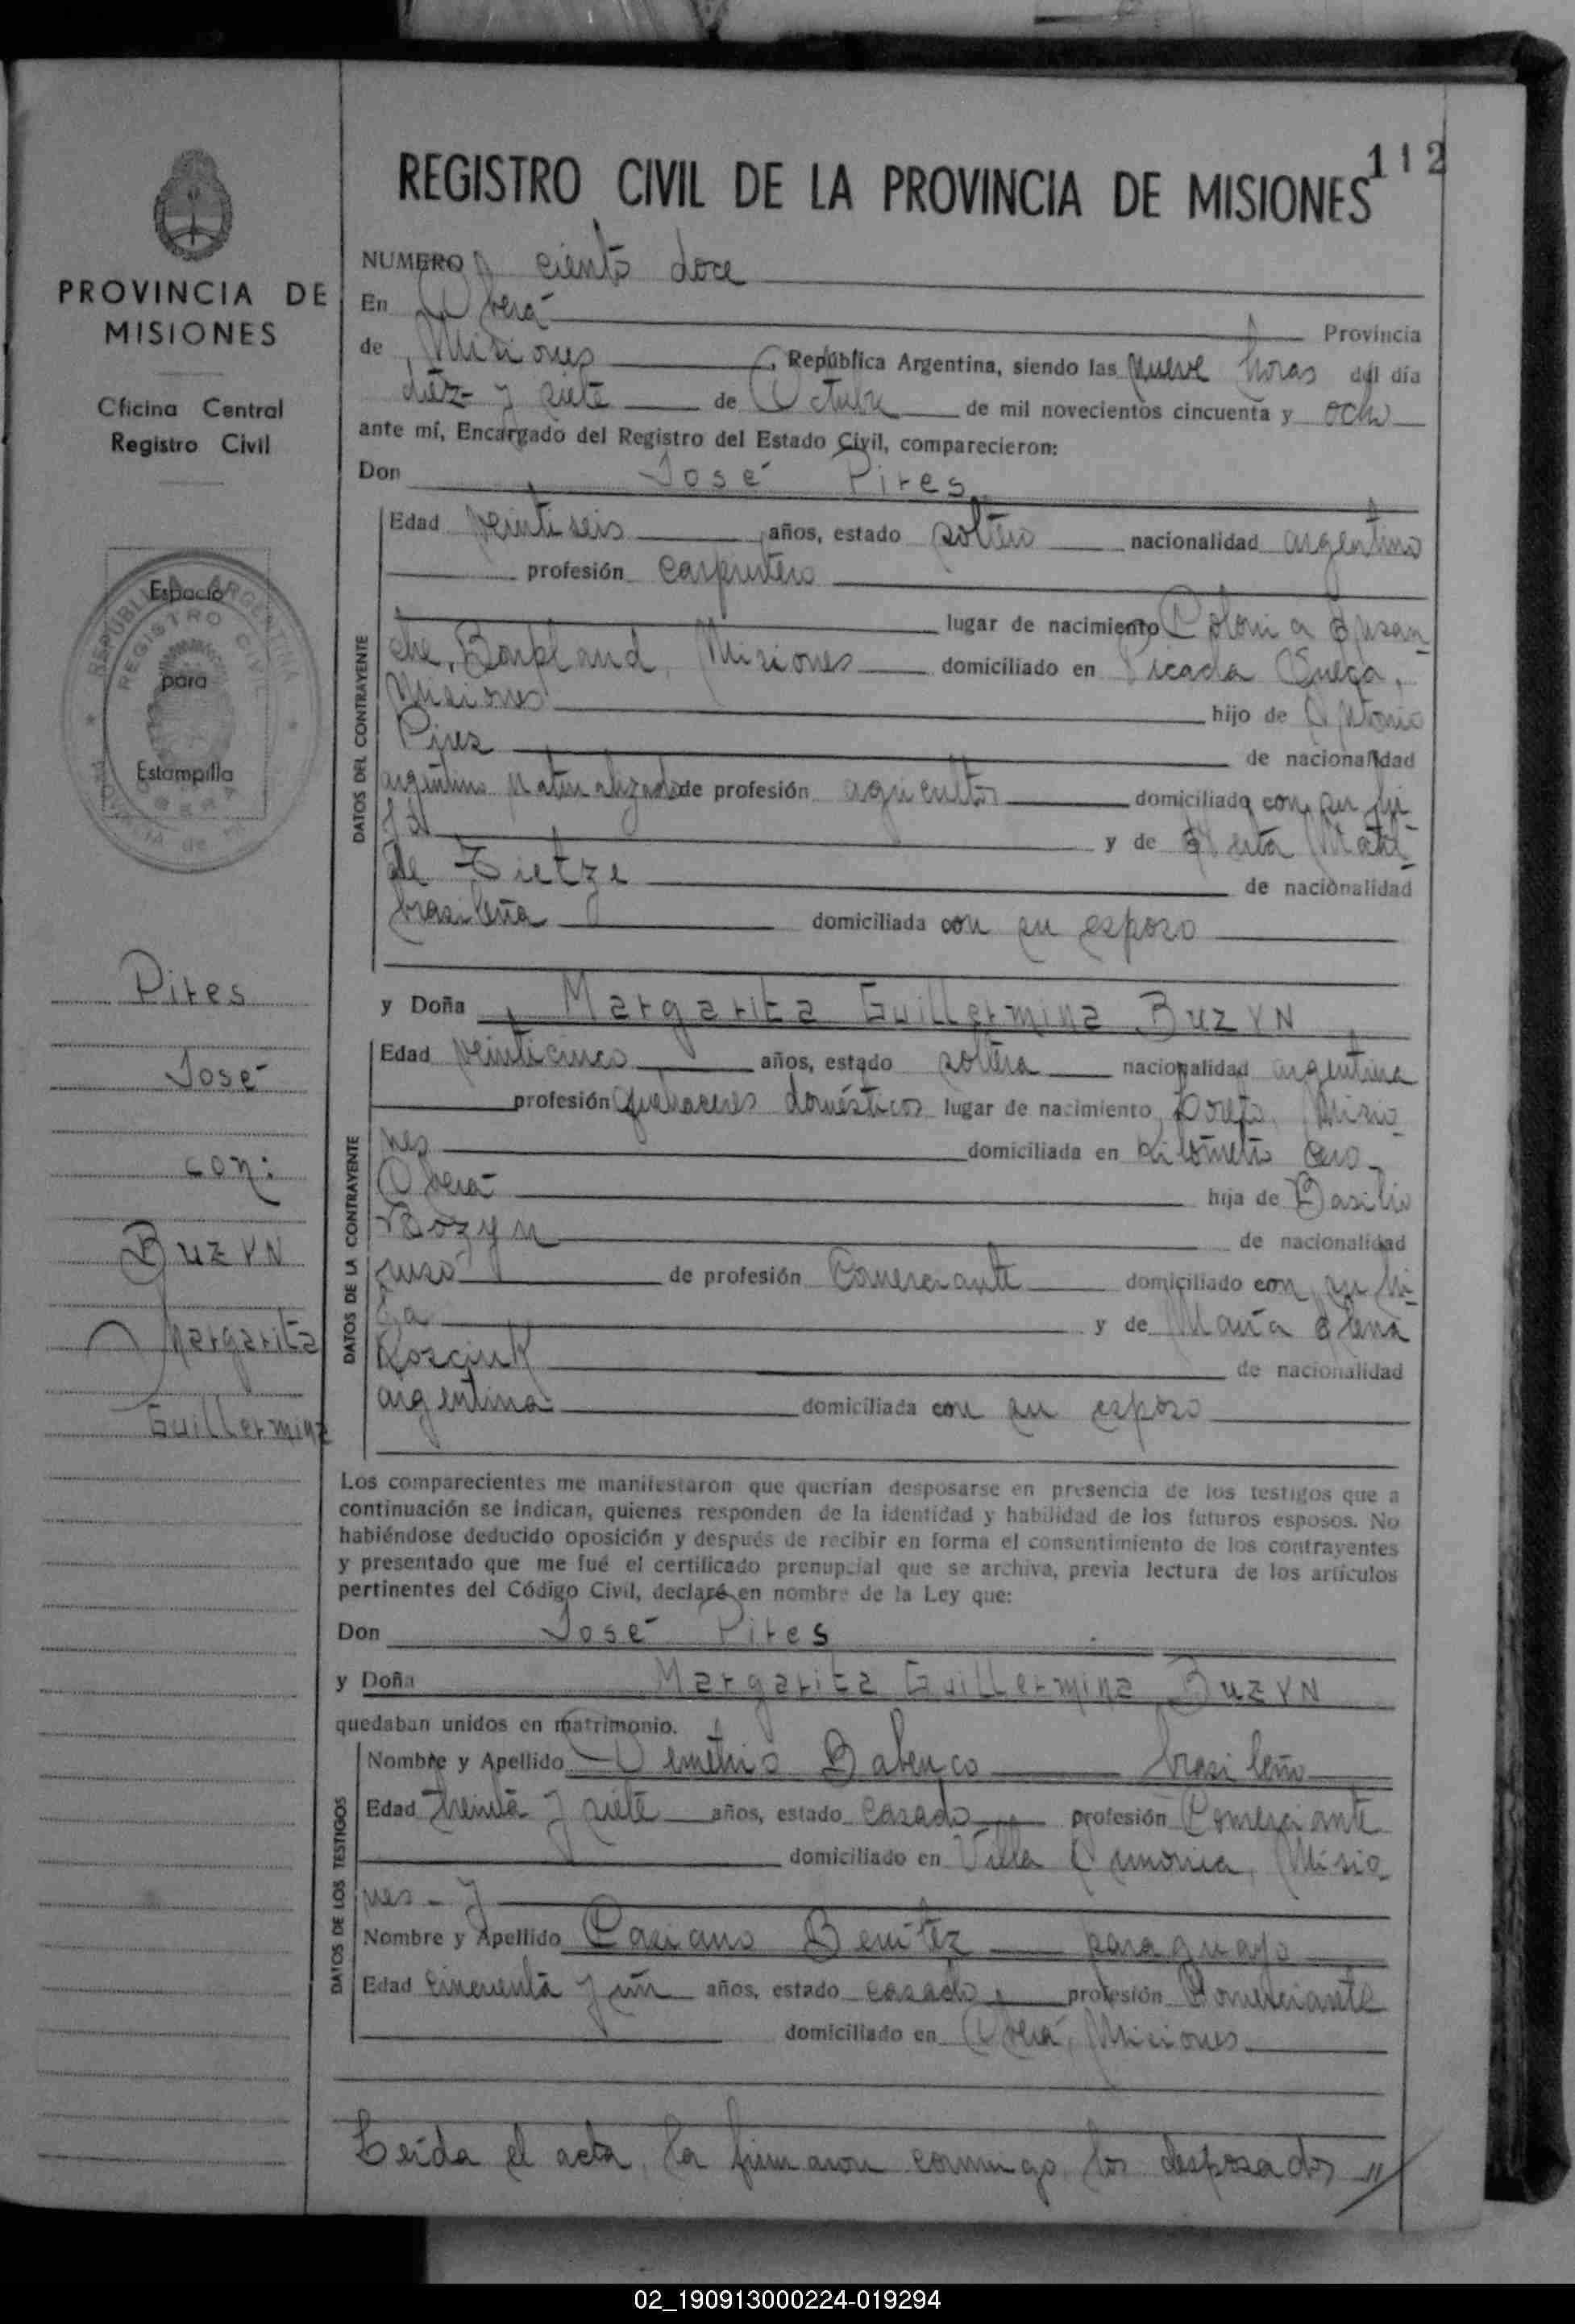 112
REGISTRO CIVIL DE LA PROVINCIA DE MISIONES
PROVINCIA DE
MISIONES
Oficina Central
Registro Civil
REPUBLICA ARGENTINA
REGISTRO CIVIL
Espacio
para
Estampilla
Pires
José
con:
BUZYN
Margarita
Guillermina
NUMERO ciento doce
En Oberá Provincia
de Misiones, República Argentina, siendo las nueve horas del día
diez y siete de Octubre de mil novecientos cincuenta y ocho
ante mí, Encargado del Registro del Estado Civil, comparecieron:
Don José Pires
DATOS DEL CONTRAYENTE
Edad veintiseis años, estado soltero nacionalidad argentino
profesión carpintero
lugar de nacimiento Colonia
che, Bonpland, Misiones domiciliado en Picada Sueca,
Misiones hijo de Antonio
Pires de nacionalidad
argentino naturalizado de profesión agricultor domiciliado con su hi
jo y de Mati-
de Tietze de nacionalidad
brasileña domiciliada con su esposo
y Doña Margarita Guillermina BUZYN
DATOS DE LA CONTRAYENTE
Edad veinticinco años, estado soltera nacionalidad argentina
profesión quehaceres domésticos lugar de nacimiento Loreto, Misio-
nes domiciliada en kilómetro cero-
Oberá hija de Basilio
Bozyn de nacionalidad
ruso de profesión Comerciante domiciliado con su hi-
ja y de María Elena
Kosciuk de nacionalidad
argentina domiciliada con su esposo
Los comparecientes me manifestaron que querían desposarse en presencia de los testigos que a
continuación se indican, quienes responden de la identidad y habilidad de los futuros esposos. No
habiéndose deducido oposición y después de recibir en forma el consentimiento de los contrayentes
y presentado que me fué el certificado prenupcial que se archiva, previa lectura de los artículos
pertinentes del Código Civil, declaré en nombre de la Ley que:
Don José Pires
y Doña Margarita Guillermina BUZYN
quedaban unidos en matrimonio.
DATOS DE LOS TESTIGOS
Nombre y Apellido Demetrio Babenco brasileño
Edad treinta y siete años, estado casado profesión Comerciante
domiciliado en Villa Armonia, Misio-
nes - y
Nombre y Apellido Casiano Benítez paraguayo
Edad cincuenta y un años, estado casado, profesión Comerciante
domiciliado en Oberá, Misiones.
Leída el acta, la firmaron conmigo, los desposados //
02_190913000224-019294